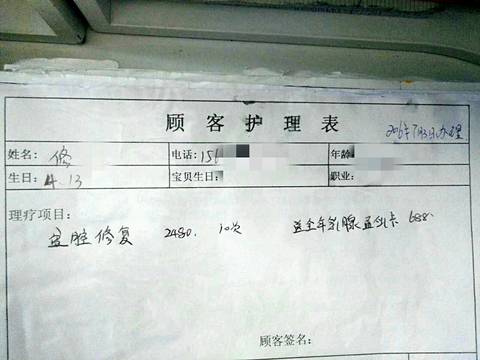 顾客护理表
2016年7月3日办理
姓名: 修 电话: 156 年龄
生日: 4.13 宝贝生日: 职业:
理疗项目:
盆腔修复 2480. 10次 送全年乳腺孟乳卡 688.
顾客签名: